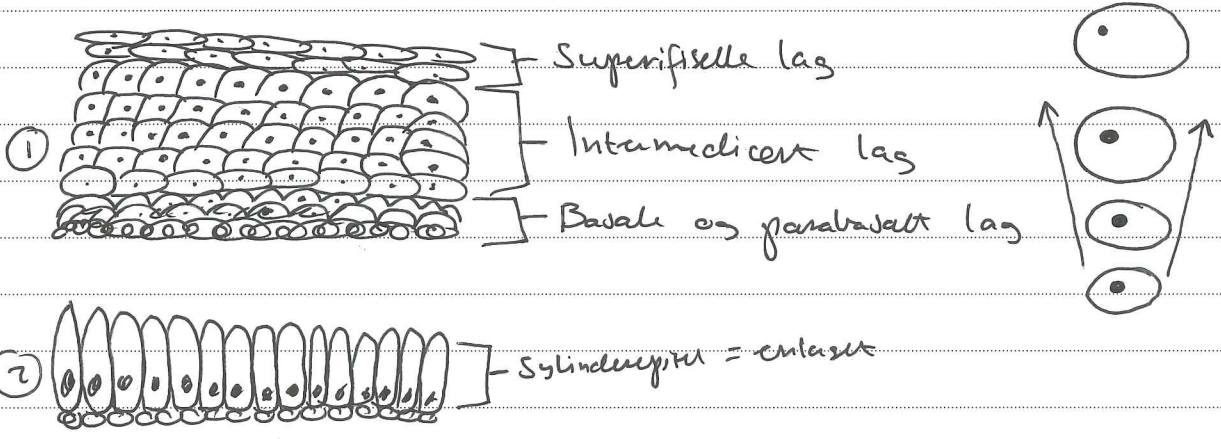 Superifiselle lag
① Intermediært lag
Basale og parabasalt lag
② Sylinderepitel = enlaget